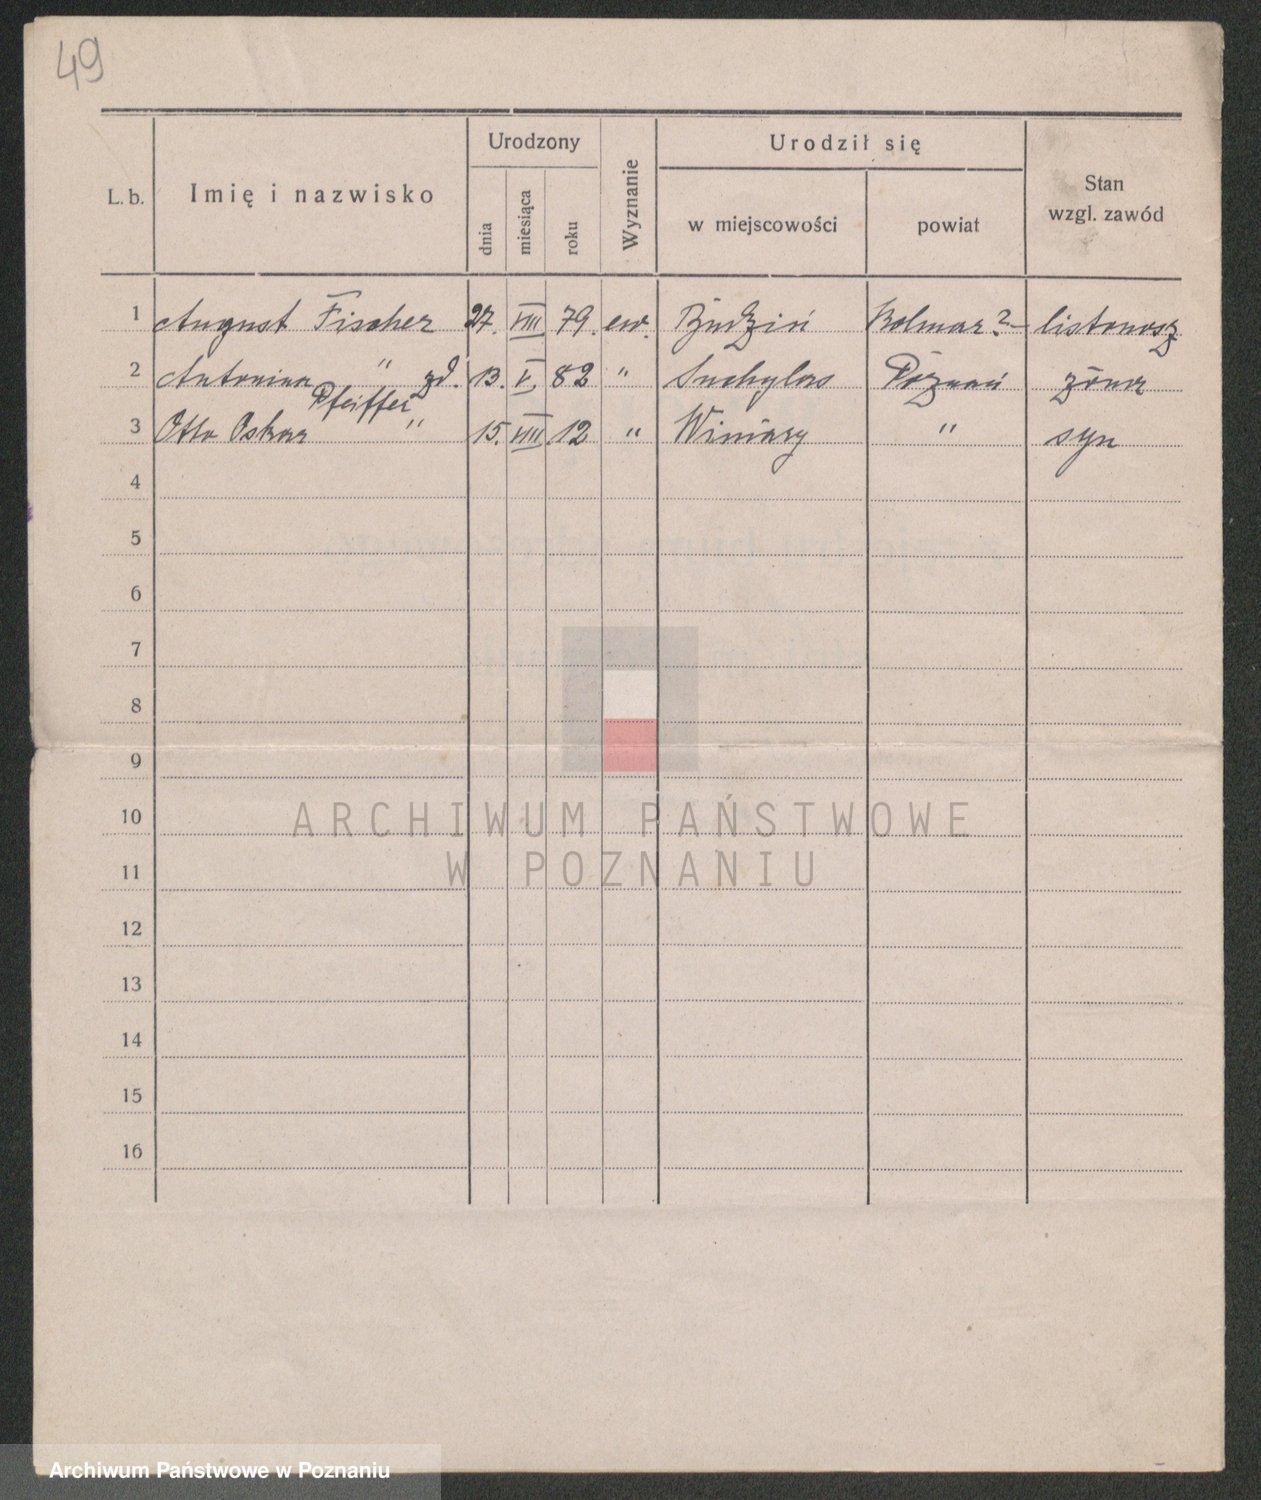 49
L. b. Imię i nazwisko Urodzony dnia miesiąca roku Wyznanie Urodził się w miejscowości powiat Stan wzgl. zawód
1 August Fischer 27. VIII 79. ew. Budziń Kolmar? listonosz
2 Antonina " zd. 13. V. 82 " Suchylas Poznań żona
Pfeiffer
3 Otto Oskar " 15. VIII 12 " Winiary " syn
4
5
6
7
8
9
10
11
12
13
14
15
16
ARCHIWUM PAŃSTWOWE
W POZNANIU
Archiwum Państwowe w Poznaniu